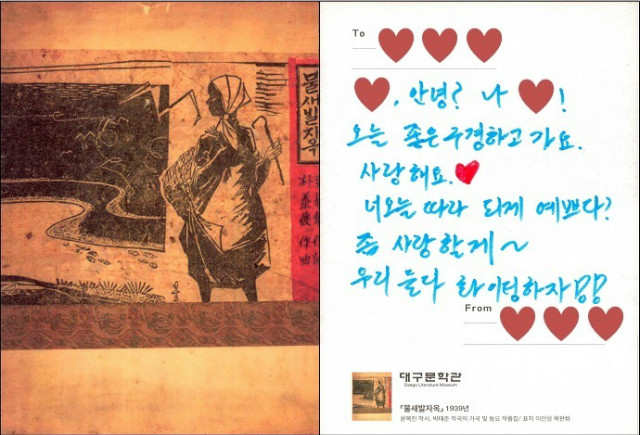 물새발자옥
朴泰俊作曲
To
, 안녕? 나 !
오늘 좋은구경하고 가요.
사랑해요.
너오늘 따라 되게 예쁘다?
좀 사랑할게~
우리 둘다 화이팅하자!!
From
대구문학관
Daegu Literature Museum
『물새발자옥』 1939년
윤복진 작시, 박태준 작곡의 가곡 및 동요 작품집/ 표지 이인성 목판화